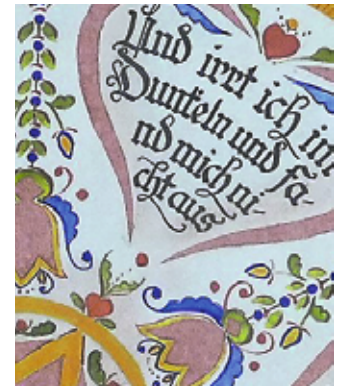 Und irrt ich im
Dunkeln und fa-
nd mich ni-
cht aus